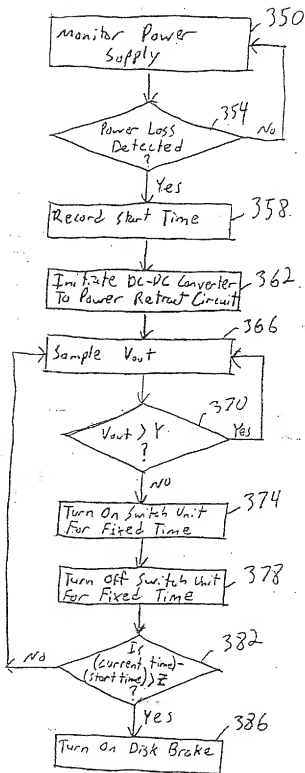 350
Monitor Power
Supply
354
Power Loss
Detected
?
No
Yes
Record Start Time
358
Initiate DC-DC Converter
To Power Retract Circuit
362
366
Sample Vout
370
Vout > Y
?
Yes
No
Turn On Switch Unit
For Fixed Time
374
Turn Off Switch Unit
For Fixed Time
378
Is
(current time)-
(start time) > Z
?
382
No
Yes
386
Turn On Disk Brake